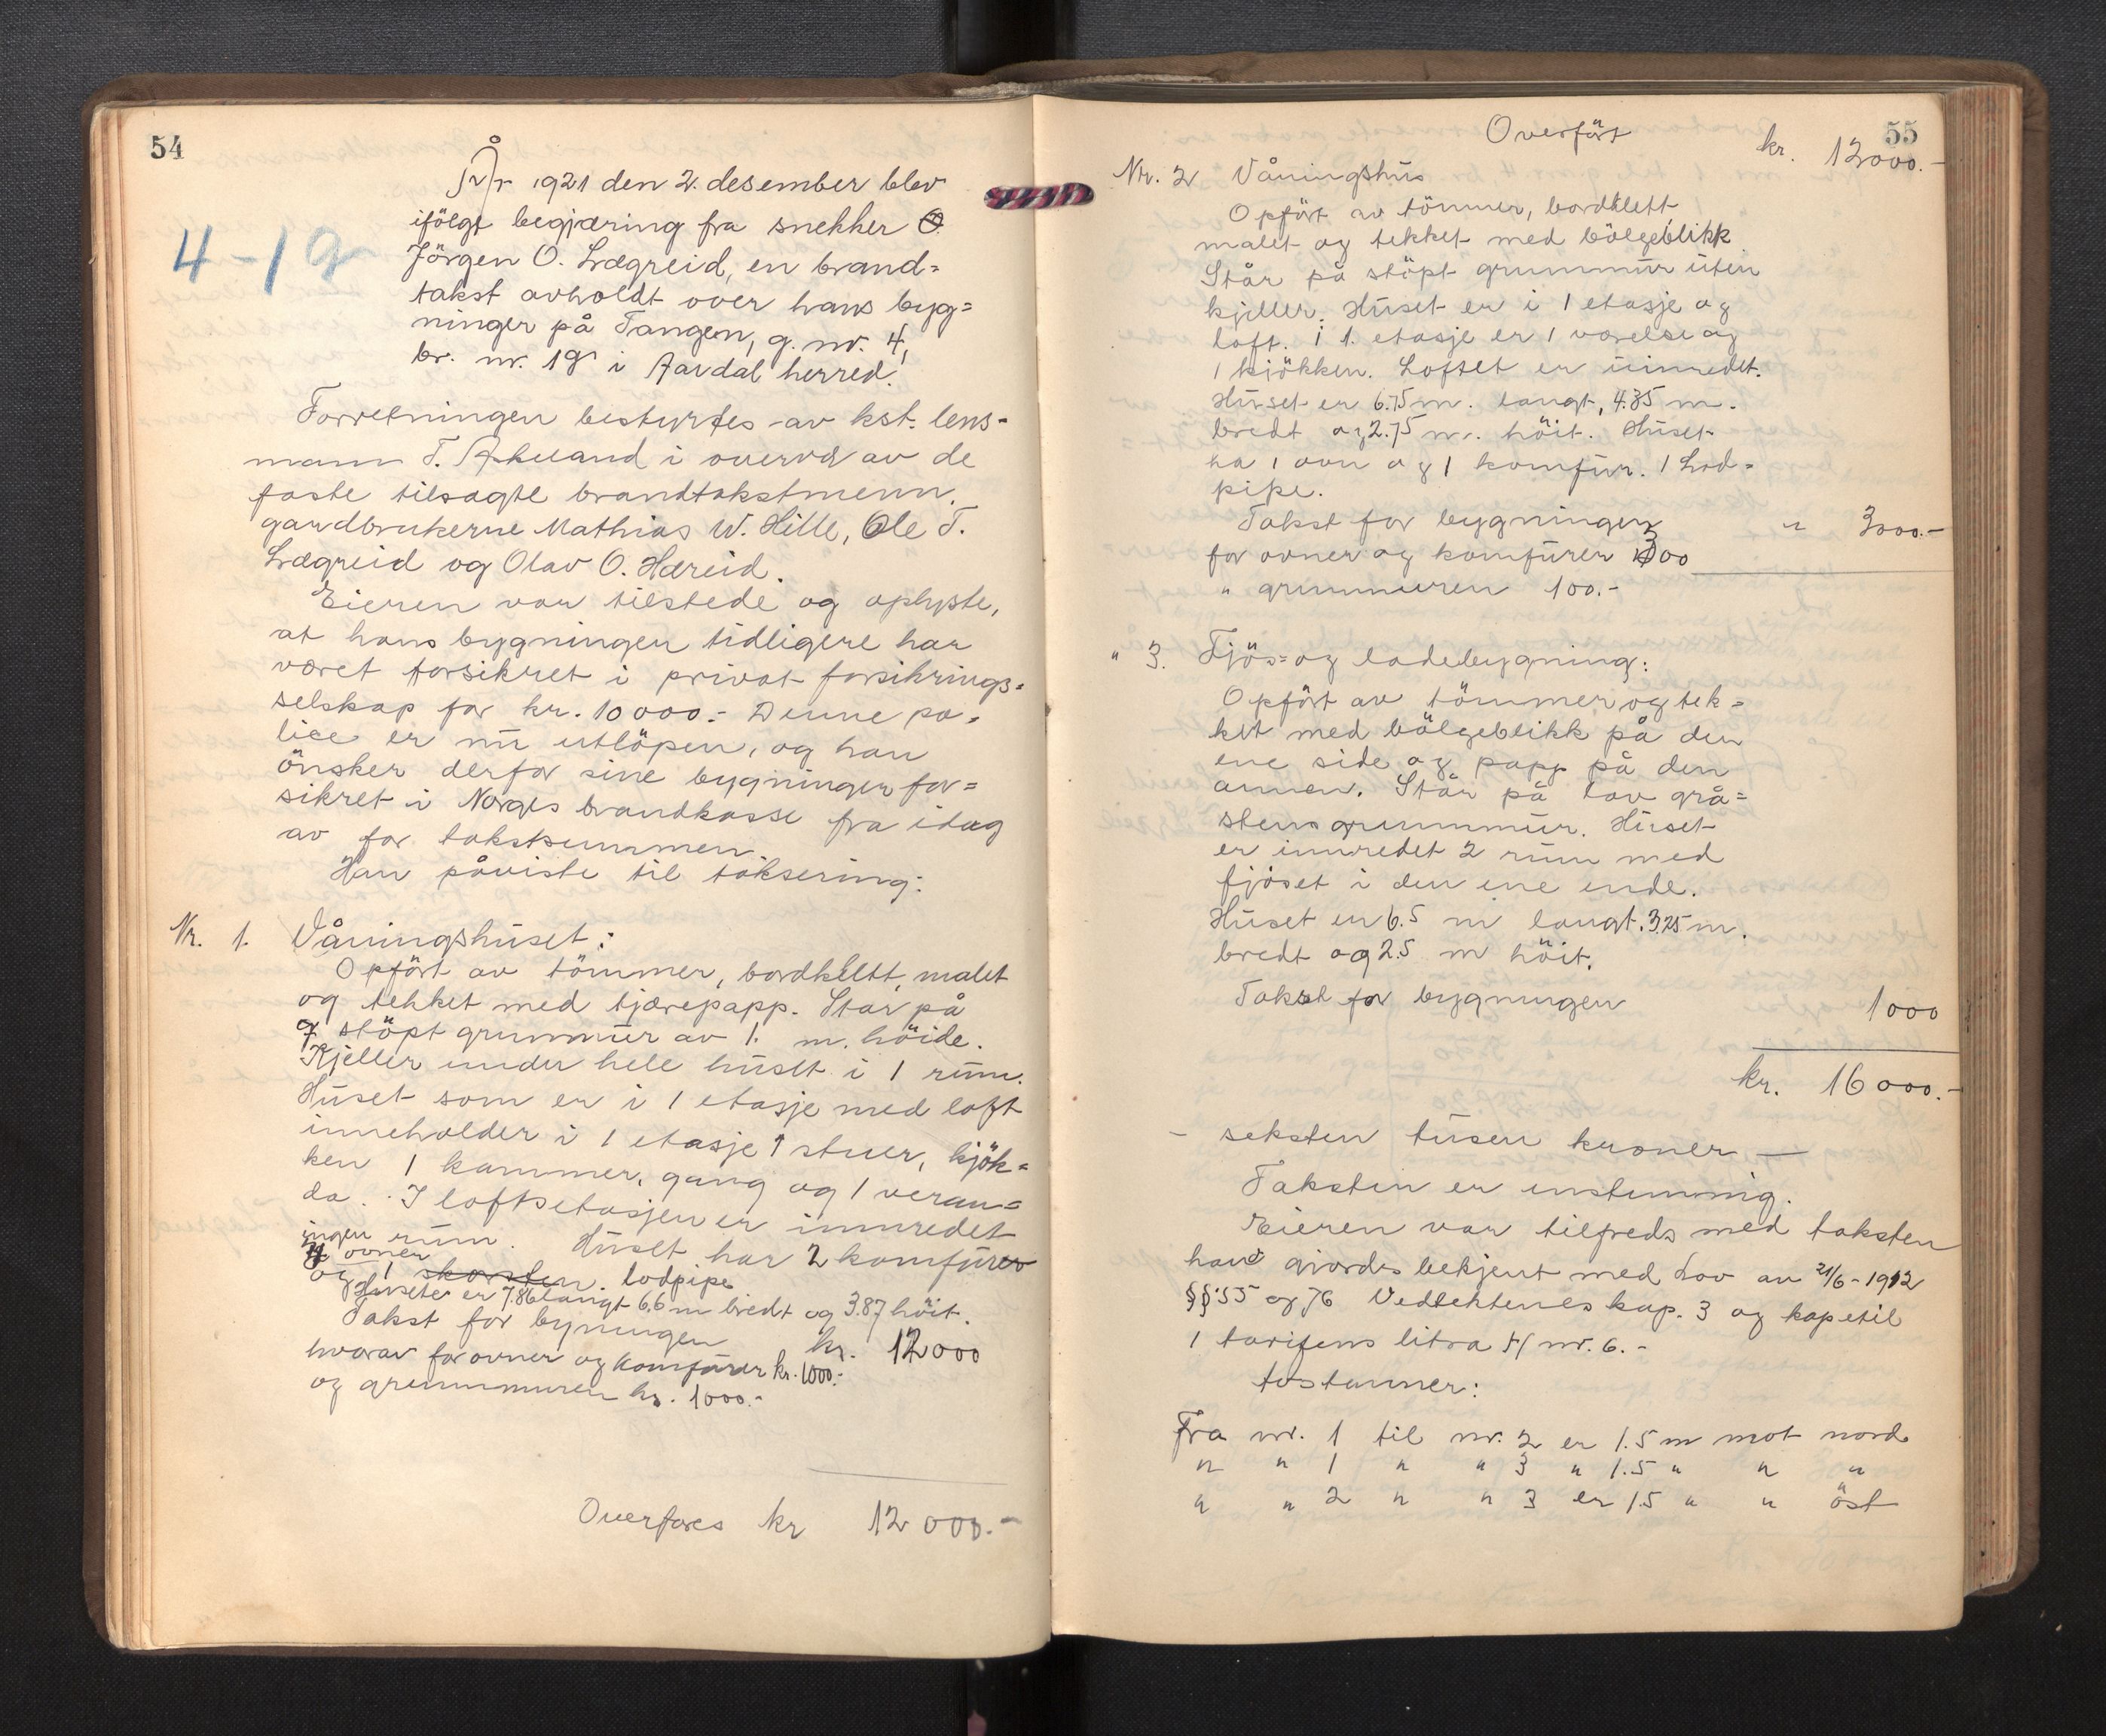 54
År 1921 den 2. desember blev
ifölge begjæring fra snekker O.
Jörgen O. Lægreid, en brand=
takst avholdt over hans byg=
ninger på Tangen, g. nr. 4,
br. nr. 19 i Aardal herred.
4-19
Forretningen bestyrtes av kst. lens-
mann T. Akeland i overvær av de
faste tilsagte brandtakstmenn,
gardbrukerne Mathias W. Hille, Ole T.
Lægreid og Olav O. Hæreid.
Eieren var tilstede og oplyste,
at hans bygningen tidligere har
været forsikret i privat forsikrings=
selskap for kr. 10000.- Denne po-
lice er nu utlöpen, og han
önsker derfor sine bygninger for=
sikret i Norges brandkasse fra idag
av for takstsummen.
Han påviste til taksering:
Nr. 1. Våningshuset:
Opfört av tömmer, bordklett, malet
og tekket med tjærepapp. Star på
stöpt grunnmur av 1. m. höide.
Kjeller under hele huset i 1 rum.
Huset som er i 1 etasje med loft
inneholder i 1 etasje 1 stuer, kjök=
ken 1 kammer, gang og 1 veran=
da. I loftsetasjen er innredet
ingen rum. Huset har 2 komfurer
4 ovner
og 1 skorsten. lodpipe
Huset er 7.86 langt 6,6 m bredt og 3.87 höit.
Takst for byningen kr. 12000
hvorav for ovner og komfurer kr. 1000.-
og grunnmuren kr. 1000.-
Overføres kr 12000.-
55
Overfört kr. 12000.-
Nr. 2 Våningshus
Opfört av tömmer, bordklett,
malet og tekket med bölgeblikk
Står på stöpt grunnmur uten
kjeller. Huset er i 1 etasje og
loft. i 1. etasje er 1 værelse og
1 kjökken. Loftet er uinredet.
Huset er 6.75 m. langt, 4.35 m.
bredt og 2.75 m. höit. Huset
ha 1 ovn og 1 komfur. 1 Lod=
pipe.
Takst for bygningen " 3000.-
for ovner og komfurer 300
" grunnmuren 100.-
" 3. Fjös- og ladebygning:
Opfört av tömmer og tek=
ket med bölgeblikk på den
ene side og papp på den
annen. Står på lav grå=
stens grunnmur. Huset
er innredet 2 rum med
fjöset i den ene ende.
Huset er 6.5 m langt. 3.25 m.
bredt og 2.5 m höit.
Takst for bygningen 1000
kr. 16000.-
- seksten tusen kroner -
Taksten er enstemmig.
Eieren var tilfreds med taksten
han giordes bekjent med Lov av 21/6-1912
§§ 55 og 76 Vedtektenes kap. 3 og kapetil
1 tarifens litra H nr. 6.-
Avstanner:
Fra nr. 1 til nr. 2 er 1.5 m mot nord
" " 1 " " 3 " 1.5 " " "
" " 2 " " 3 er 1.5 " " öst